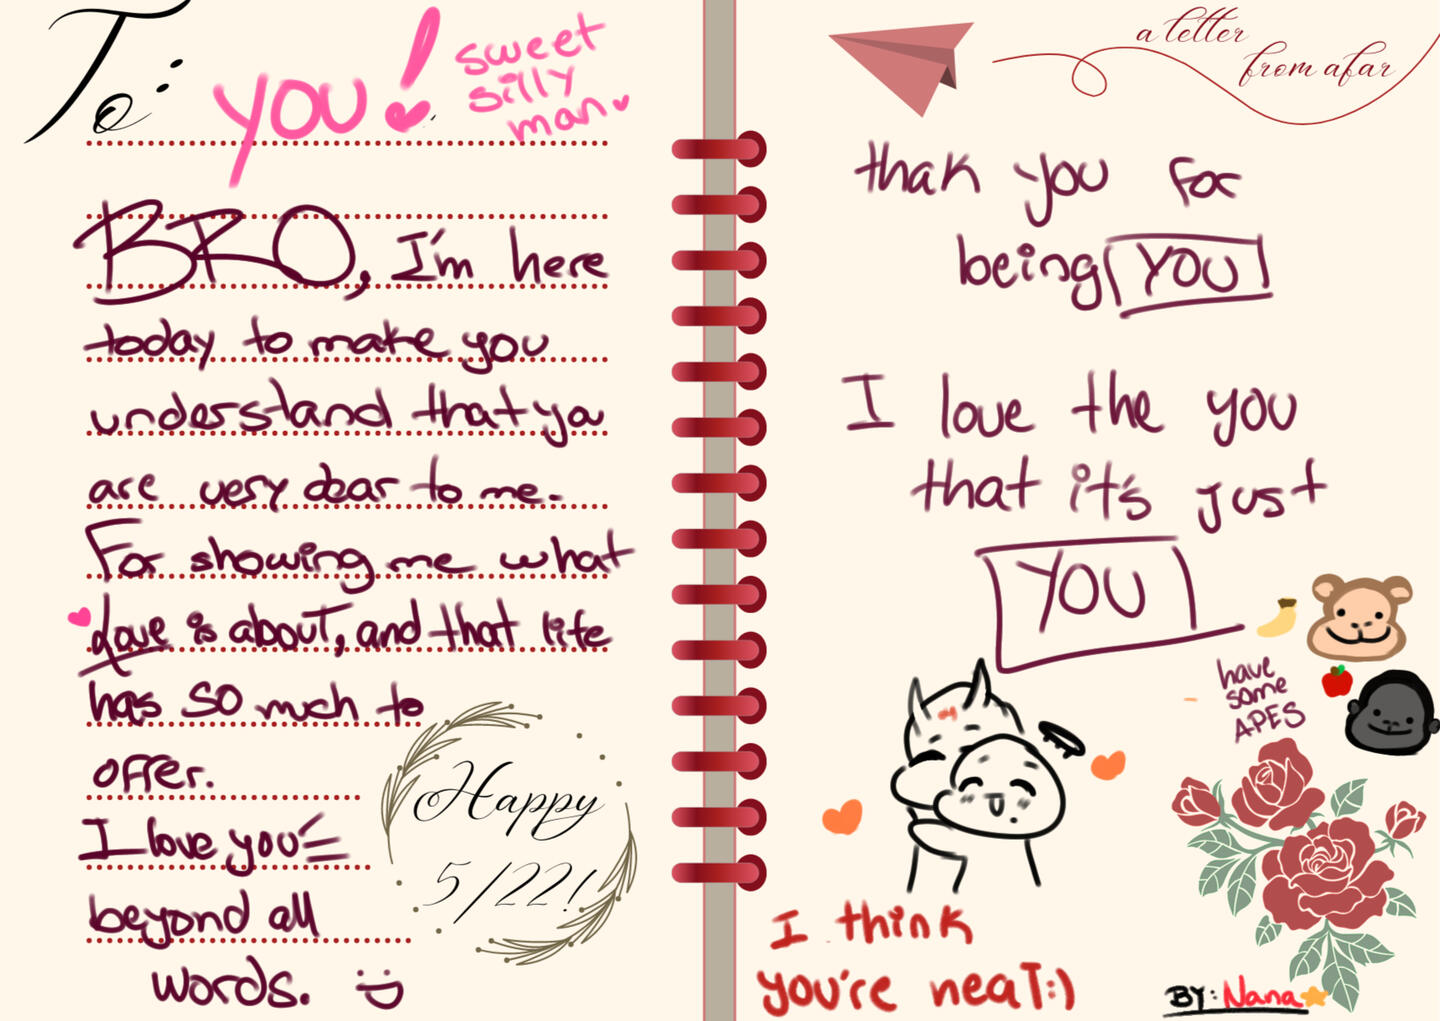 To: YOU!
sweet
silly
man
BRO, I'm here
today to make you
understand that ya
are very dear to me.
For showing me what
Love is about, and that life
has SO much to
offer.
I love you
beyond all
words. :D
Happy
5/22!
a letter
from afar
thak you for
being YOU
I love the you
that it's just
YOU
have
some
APES
I think
you're neat:)
BY: Nana